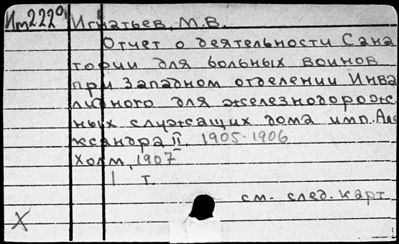 Им222 Игнатьев, М.В.
Отчет о деятельности Сана
тории для больных воинов
при Западном отделении Инва
лидного для железнодорож.
ных служащих дома имп. Але
ксандра II. 1905-1906
Холм, 1907
1 т.
см. след. карт
X